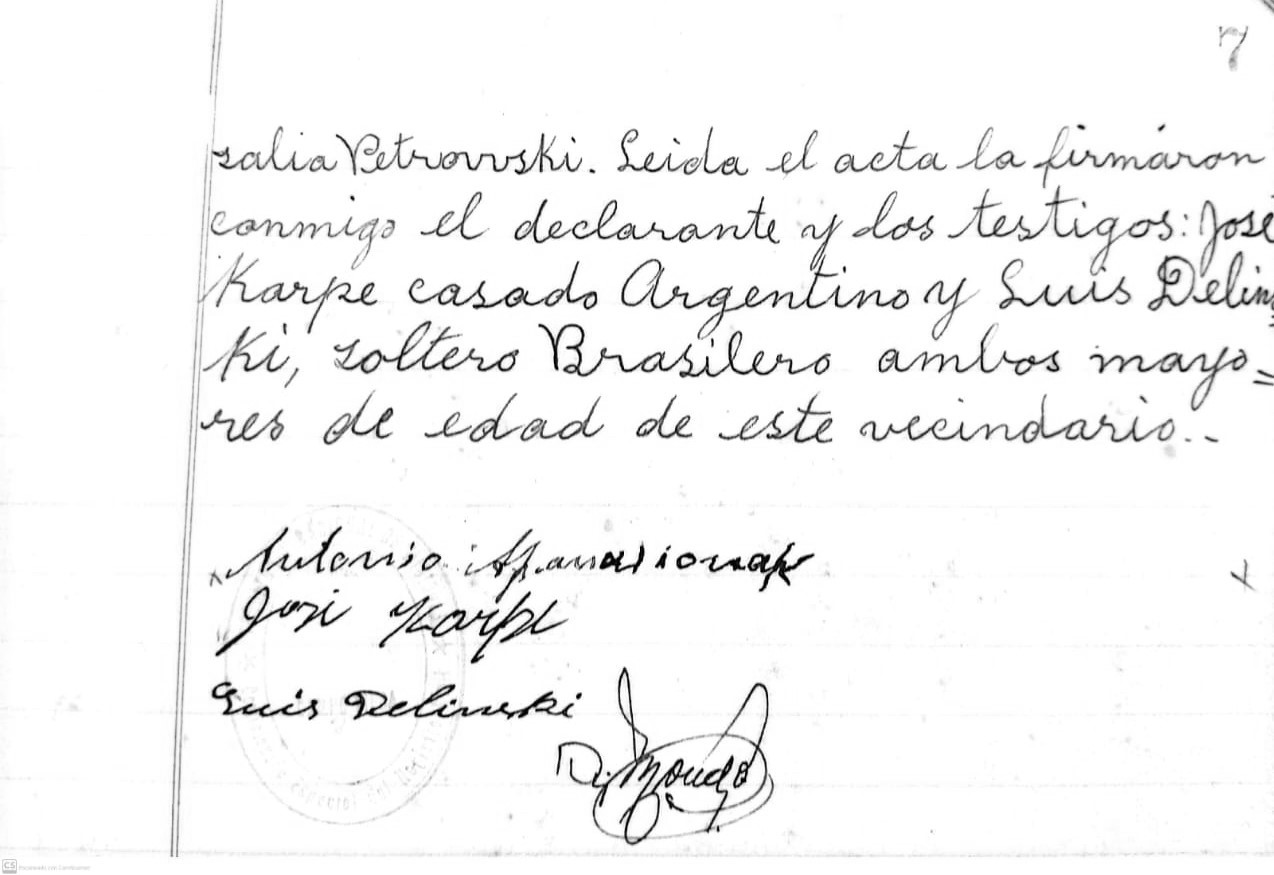 7
salia Petrovvski. Leida el acta la firmáron
conmigo el declarante y los testigos: José
Karpe casado Argentino y Luis Delins=
ki, soltero Brasilero ambos mayo=
res de edad de este vecindario..
Antonio
José Karpe
Luis Delinski
CS Escaneado con CamScanner